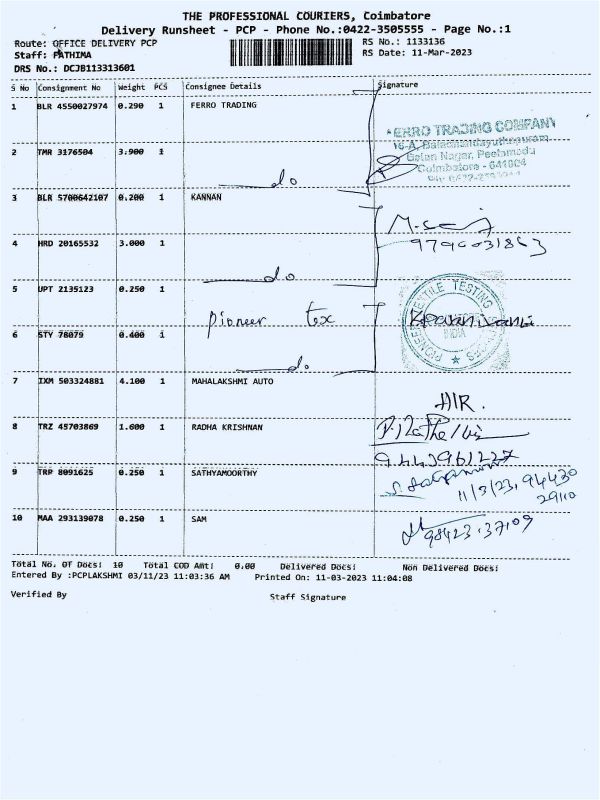 THE PROFESSIONAL COURIERS, Coimbatore
Delivery Runsheet - PCP - Phone No.:0422-3505555 - Page No.:1
Route: OFFICE DELIVERY PCP RS No.: 1133136
Staff: PATHIMA RS Date: 11-Mar-2023
DRS No.: DCJB113313601
S No Consignment No Weight PCS Consignee Details Signature
1 BLR 4550027974 0.290 1 FERRO TRADING
ERRO TRADING COMPANY
2 TMR 3176504 3.900 1
Coimbatore - 641004
do
3 BLR 5700642107 0.200 1 KANNAN
4 HRD 20165532 3.000 1
do
5 UPT 2135123 0.250 1
Pioneer Tex
6 STY 78079 0.400 1
INDIA
do
7 IXM 503324881 4.100 1 MAHALAKSHMI AUTO
8 TRZ 45703869 1.600 1 RADHA KRISHNAN
9443961227
9 TRP 8091625 0.250 1 SATHYAMOORTHY
11/3/23, 94430
29110
10 MAA 293139078 0.250 1 SAM
98423.37109
Total No. Of Docs: 10 Total COD Amt: 0.00 Delivered Docs: Non Delivered Docs:
Entered By :PCPLAKSHMI 03/11/23 11:03:36 AM Printed On: 11-03-2023 11:04:08
Verified By Staff Signature